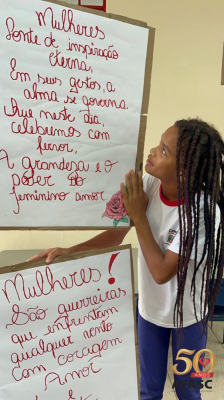 Mulheres
fonte de inspiração
eterna,
Em seus gestos, a
alma se governa
Que neste dia,
celebremos com
fervor,
A grandesa e o
poder do
feminino amor
Mulheres!
São guerreiras
que enfrentam
qualquer
com coragem
Amor
50
ANOS